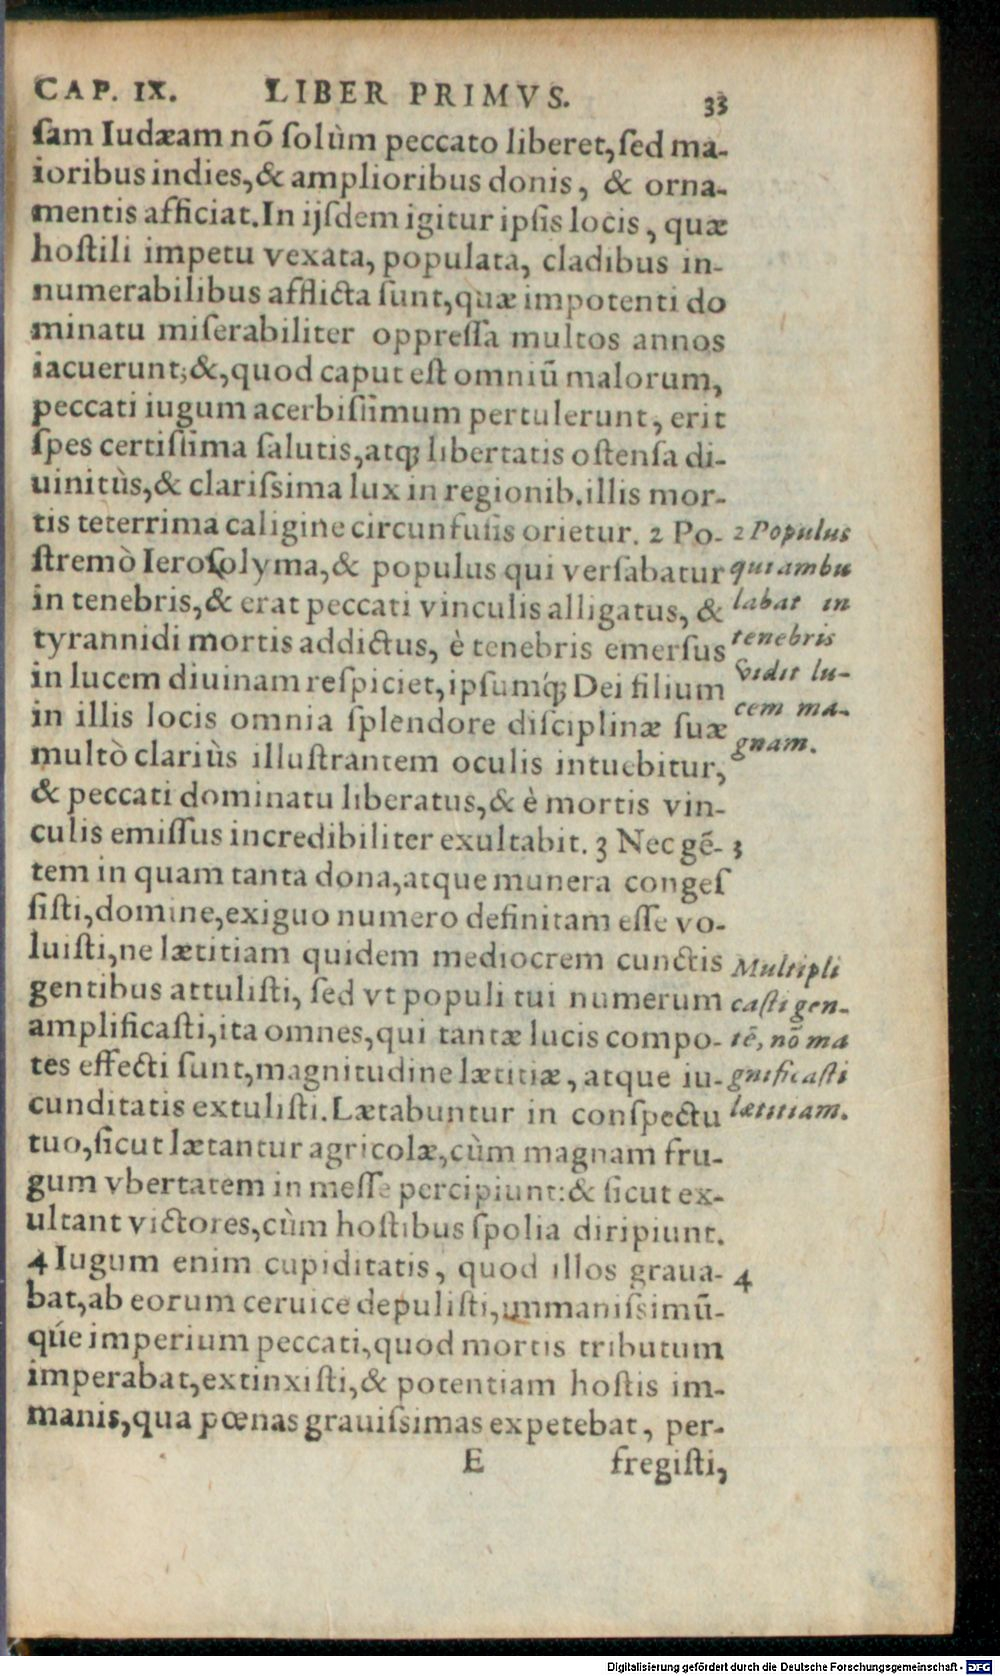 CAP. IX. LIBER PRIMVS. 33
ſam Iudæam nõ ſolùm peccato liberet, ſed ma-
ioribus indies, & amplioribus donis, & orna-
mentis afficiat. In ijſdem igitur ipſis locis, quæ
hoſtili impetu vexata, populata, cladibus in-
numerabilibus afflicta ſunt, quæ impotenti do
minatu miſerabiliter oppreſſa multos annos
iacuerunt; &, quod caput eſt omniũ malorum,
peccati iugum acerbiſſimum pertulerunt, erit
ſpes certiſſima ſalutis, atq; libertatis oſtenſa di-
uinitùs, & clariſsima lux in regionib. illis mor-
tis teterrima caligine circunfuſis orietur. 2 Po-
ſtremò Ieroſolyma, & populus qui verſabatur
in tenebris, & erat peccati vinculis alligatus, &
tyrannidi mortis addictus, è tenebris emerſus
in lucem diuinam reſpiciet, ipſumq́; Dei filium
in illis locis omnia ſplendore diſciplinæ ſuæ
multò clariùs illuſtrantem oculis intuebitur,
& peccati dominatu liberatus, & è mortis vin-
culis emiſſus incredibiliter exultabit. 3 Nec gẽ-
tem in quam tanta dona, atque munera congeſ
ſiſti, domine, exiguo numero definitam eſſe vo-
luiſti, ne lætitiam quidem mediocrem cunctis
gentibus attuliſti, ſed vt populi tui numerum
amplificaſti, ita omnes, qui tantæ lucis compo-
tes effecti ſunt, magnitudine lætitiæ, atque iu-
cunditatis extuliſti. Lætabuntur in conſpectu
tuo, ſicut lætantur agricolæ, cùm magnam fru-
gum vbertatem in meſſe percipiunt: & ſicut ex-
ultant victores, cùm hoſtibus ſpolia diripiunt.
4 Iugum enim cupiditatis, quod illos graua-
bat, ab eorum ceruice depuliſti, immaniſsimũ-
qúe imperium peccati, quod mortis tributum
imperabat, extinxiſti, & potentiam hoſtis im-
manis, qua pœnas grauiſsimas expetebat, per-
E fregiſti,
2 Populus
qui ambu
labat in
tenebris
vidit lu-
cem ma-
gnam.
3
Multipli
caſti gen-
tẽ, nõ ma
gnificaſti
lætitiam.
4
Digitalisierung gefördert durch die Deutsche Forschungsgemeinschaft - DFG